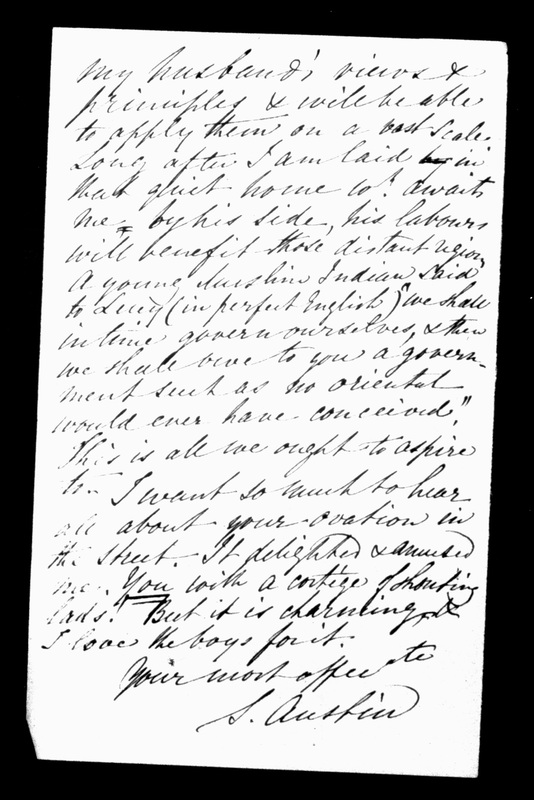 my husband's views &
principles & will be able
to apply them on a vast scale.
Long after I am laid in
that quiet home wh. awaits
me – by his side, his labours
will benefit those distant regions
A young Muslim Indian said
to Lucy (in perfect English) "we shall
in time govern ourselves, & then
we shall owe to you a govern-
ment such as no oriental
would ever have conceived."
This is all we ought to aspire
to. – I want so much to hear
all about your ovation in
the street. It delighted & amused
me. You with a cortège of shouting
lads! But it is charming, &
I love the boys for it.
Your most affec ate
S. Austin